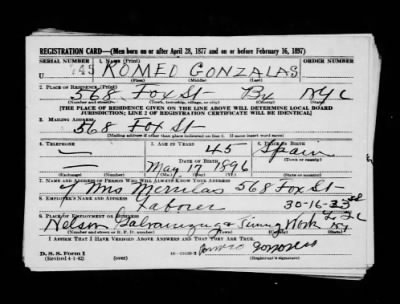 REGISTRATION CARD—(Men born on or after April 28, 1877 and on or before February 16, 1897)
SERIAL NUMBER 1. NAME (Print) ORDER NUMBER
U 345 ROMEO GONZALAS
(First) (Middle) (Last)
2. PLACE OF RESIDENCE (Print)
568 Fox St Bx NYC
(Number and street) (Town, township, village, or city) (County) (State)
[THE PLACE OF RESIDENCE GIVEN ON THE LINE ABOVE WILL DETERMINE LOCAL BOARD
JURISDICTION; LINE 2 OF REGISTRATION CERTIFICATE WILL BE IDENTICAL]
3. MAILING ADDRESS
568 Fox St
(Mailing address if other than place indicated on line 2. If same insert word same)
4. TELEPHONE 5. AGE IN YEARS 6. PLACE OF BIRTH
45 Spain
DATE OF BIRTH (Town or county)
May 17 1896
(Exchange) (Number) (Mo.) (Day) (Yr.) (State or country)
7. NAME AND ADDRESS OF PERSON WHO WILL ALWAYS KNOW YOUR ADDRESS
Mrs 568 Fox St
8. EMPLOYER'S NAME AND ADDRESS
Laborer 30-16-
9. PLACE OF EMPLOYMENT OR BUSINESS
Nelson Work NY
(Number and street or R. F. D. number) (Town) (County) (State)
I AFFIRM THAT I HAVE VERIFIED ABOVE ANSWERS AND THAT THEY ARE TRUE.
D. S. S. Form 1
(Revised 4-1-42) (over) (Registrant's signature)